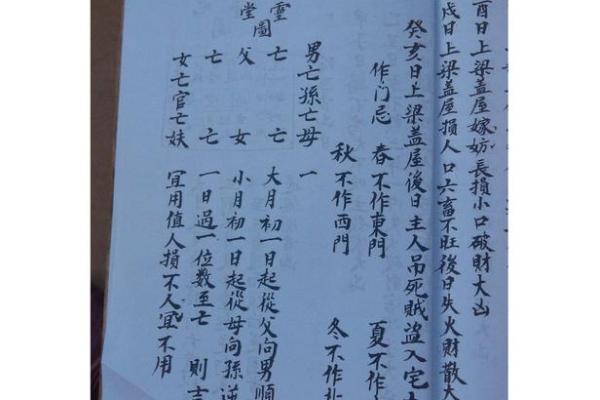 酉日上梁盖屋嫁妨長損小口破財大凶
戌日上梁盖屋損人口六畜不旺後日失火財散大
癸亥日上梁盖屋後日主人吊死賊盜入宅
作门忌 春不作東門 夏不作
秋不作西門 冬不作
男亡孫亡母一
靈堂圖
亡 亡 大月初一日起從父向男順
父 女 小月初一日起從母向孫逆
亡 亡 一日過一位数至亡 則吉
女亡官亡妖 宜用值人損不人宜不用